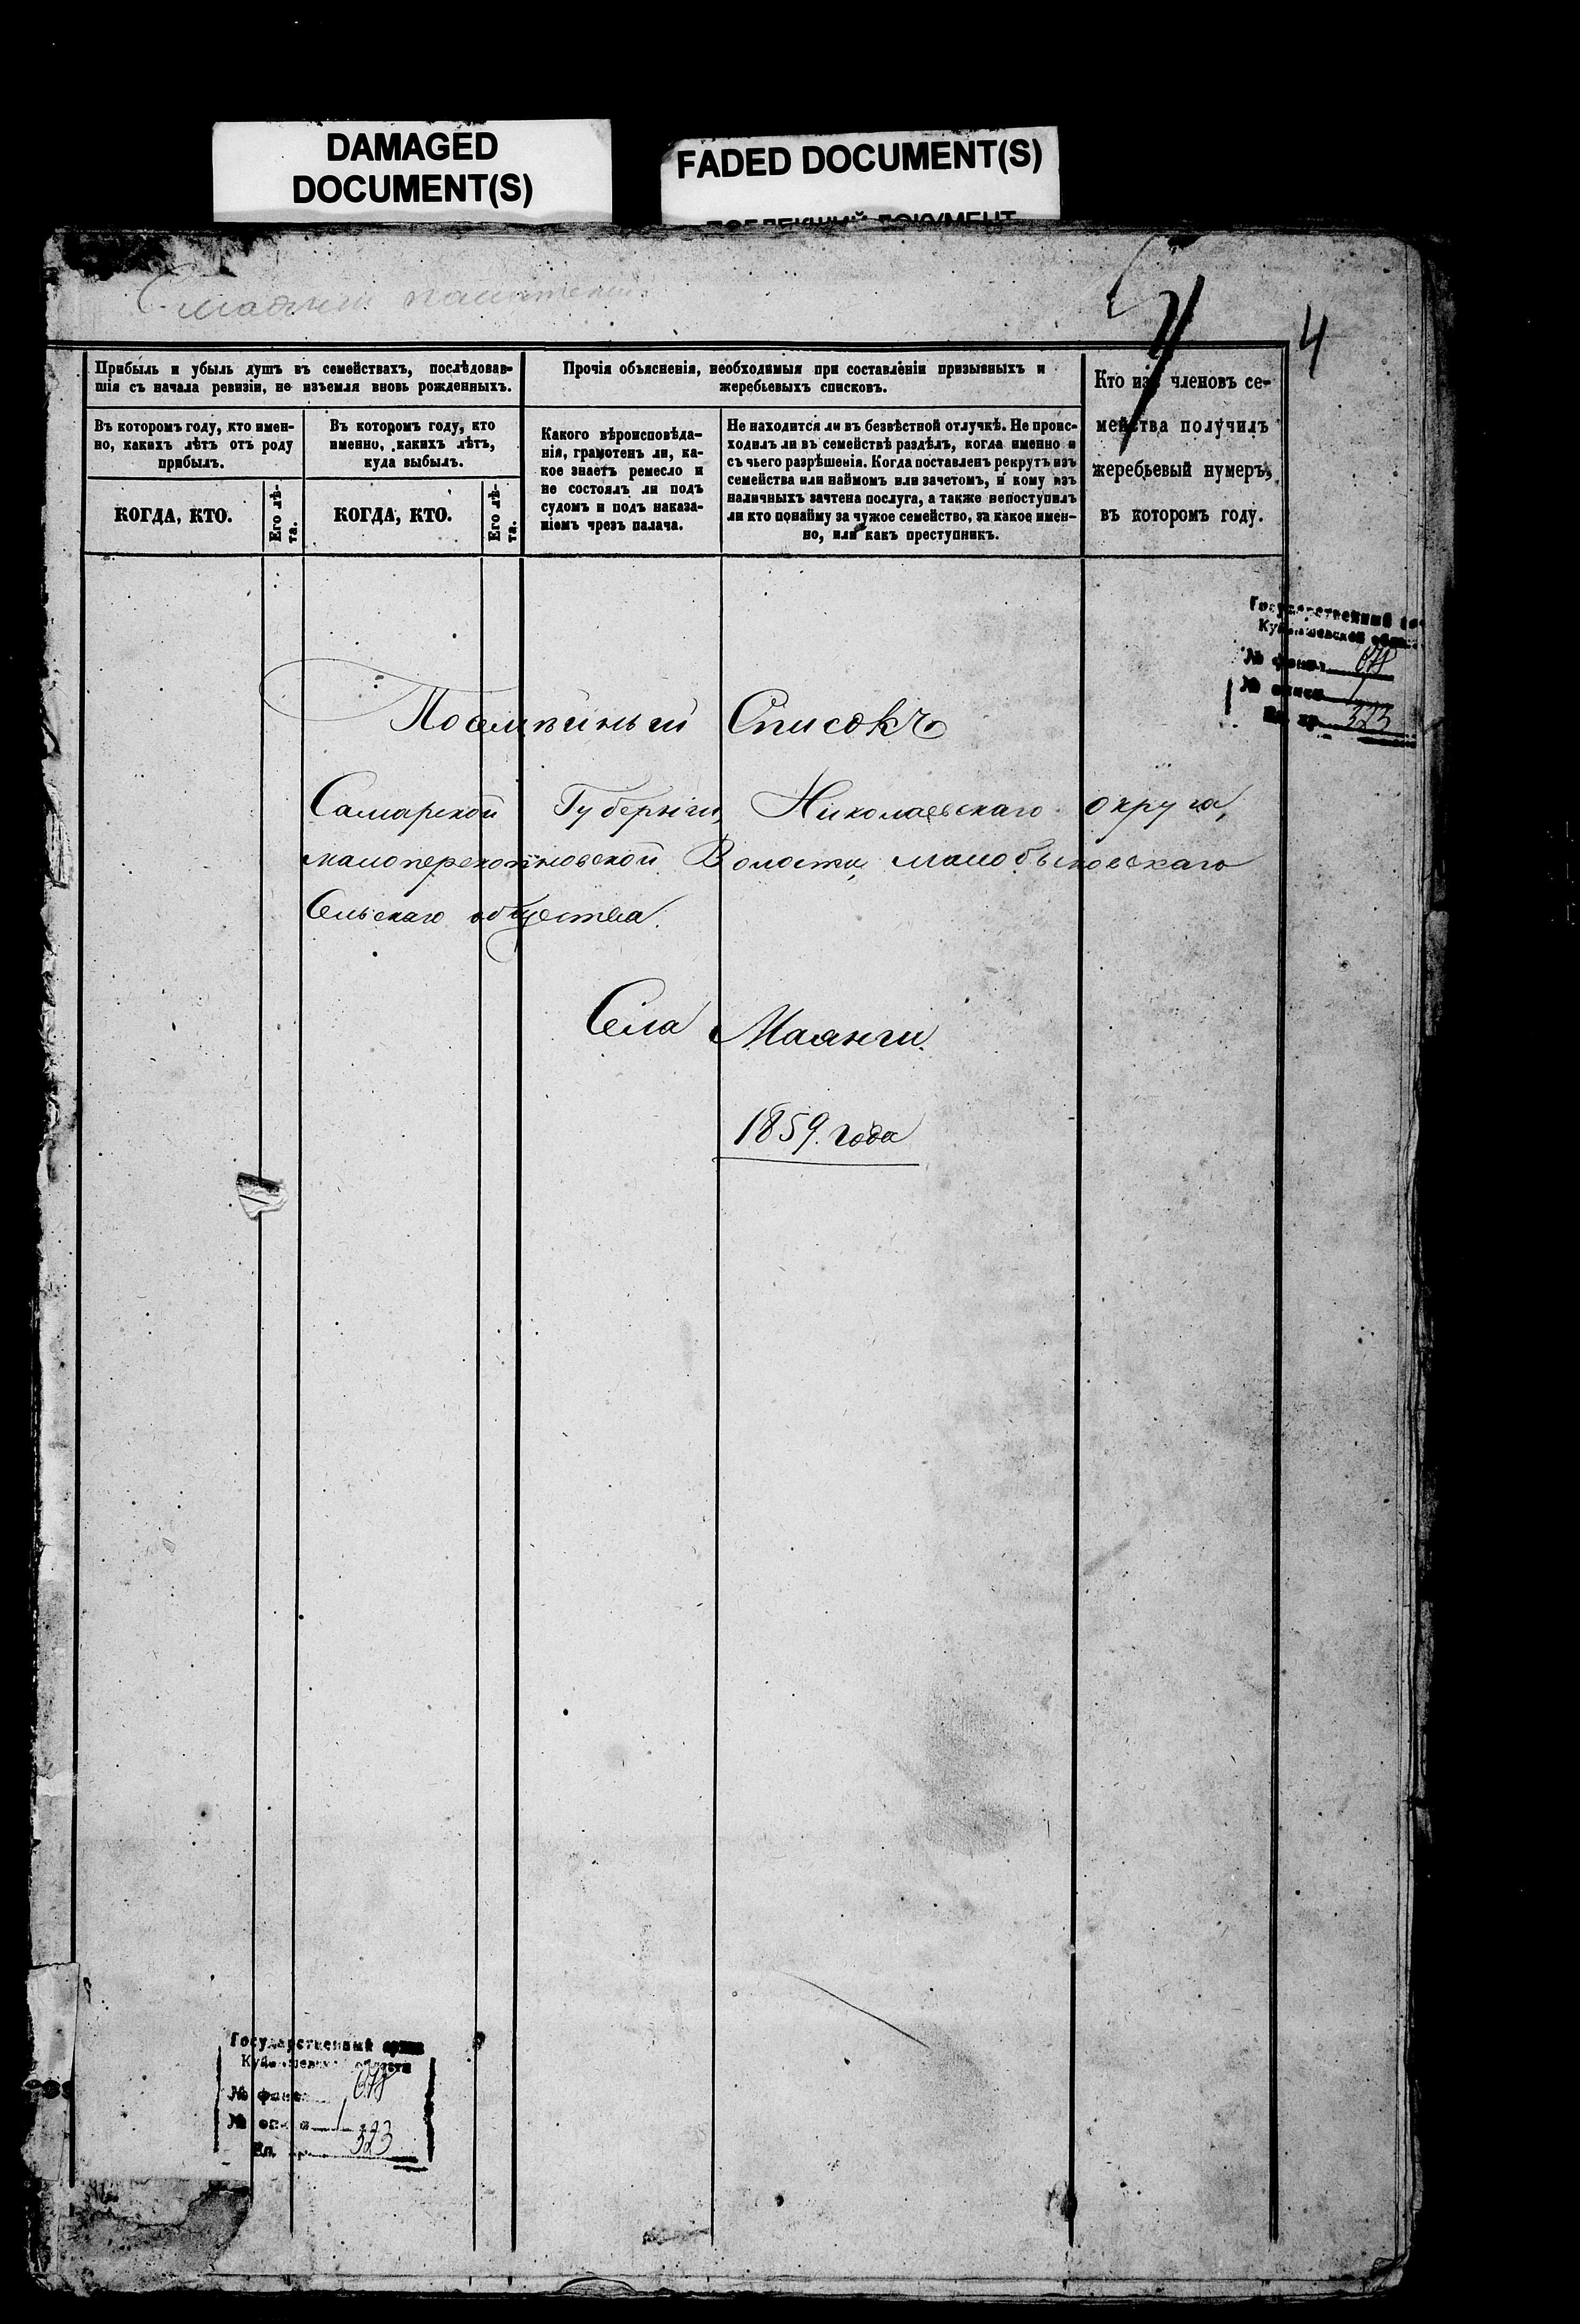 DAMAGED
DOCUMENT(S)
FADED DOCUMENT(S)
4
Прибыль и убыль душъ въ семействахъ, послѣдовав-
шія съ начала ревизіи, не изъемля вновь рожденныхъ.
Въ которомъ году, кто имен-
но, какихъ лѣтъ отъ роду
прибылъ.
Въ которомъ году, кто
именно, какихъ лѣтъ,
куда выбылъ.
КОГДА, КТО.
Его лѣ-
та.
КОГДА, КТО.
Его лѣ-
та.
Прочія объясненія, необходимыя при составленіи призывныхъ и
жеребьевыхъ списковъ.
Какого вѣроисповѣда-
нія, грамотенъ ли, ка-
кое знаетъ ремесло и
не состоялъ ли подъ
судомъ и подъ наказа-
ніемъ чрезъ палача.
Не находится ли въ безвѣстной отлучкѣ. Не проис-
ходилъ ли въ семействѣ раздѣлъ, когда именно и
съ чьего разрѣшенія. Когда поставленъ рекрутъ изъ
семейства или наймомъ или зачетомъ, и кому изъ
наличныхъ зачтена послуга, а также непоступилъ
ли кто понайму за чужое семейство, за какое имен-
но, или какъ преступникъ.
Кто изъ членовъ се-
мейства получилъ
жеребьевый нумеръ,
въ которомъ году.
Государственный
Куйбышевской
№
№
373
Посемѣйный Списокъ
Самарской Губерніи, Николаевскаго округа,
малоперекопновской Волости, малобыковскаго
Сельскаго общества.
Села Маянги.
1859. года
Государственный архив
Куйбышевской области
№ фонда
№ описи 1
373